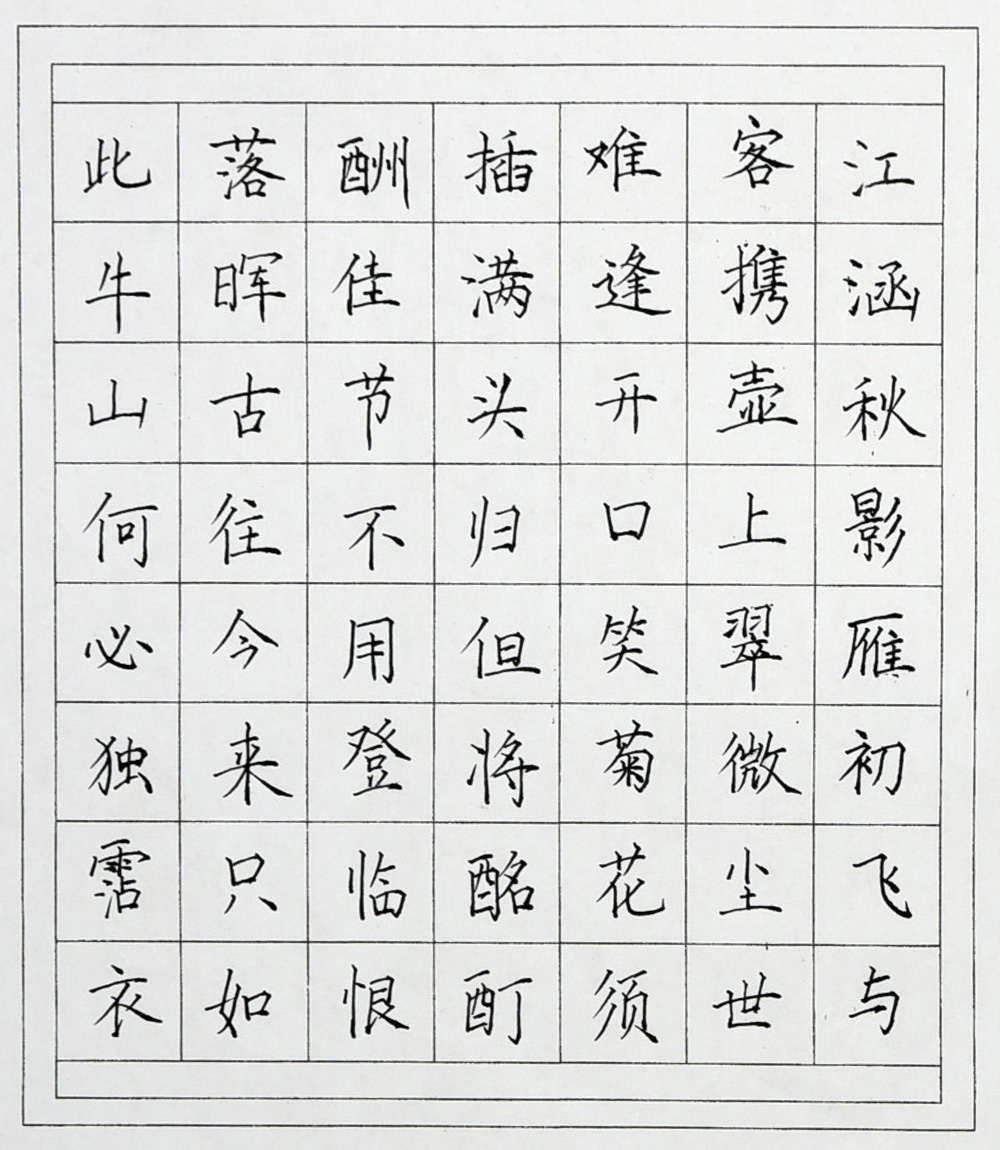 江涵秋影雁初飞与
客携壶上翠微尘世
难逢开口笑菊花须
插满头归但将酩酊
酬佳节不用登临恨
落晖古往今来只如
此牛山何必独霑衣